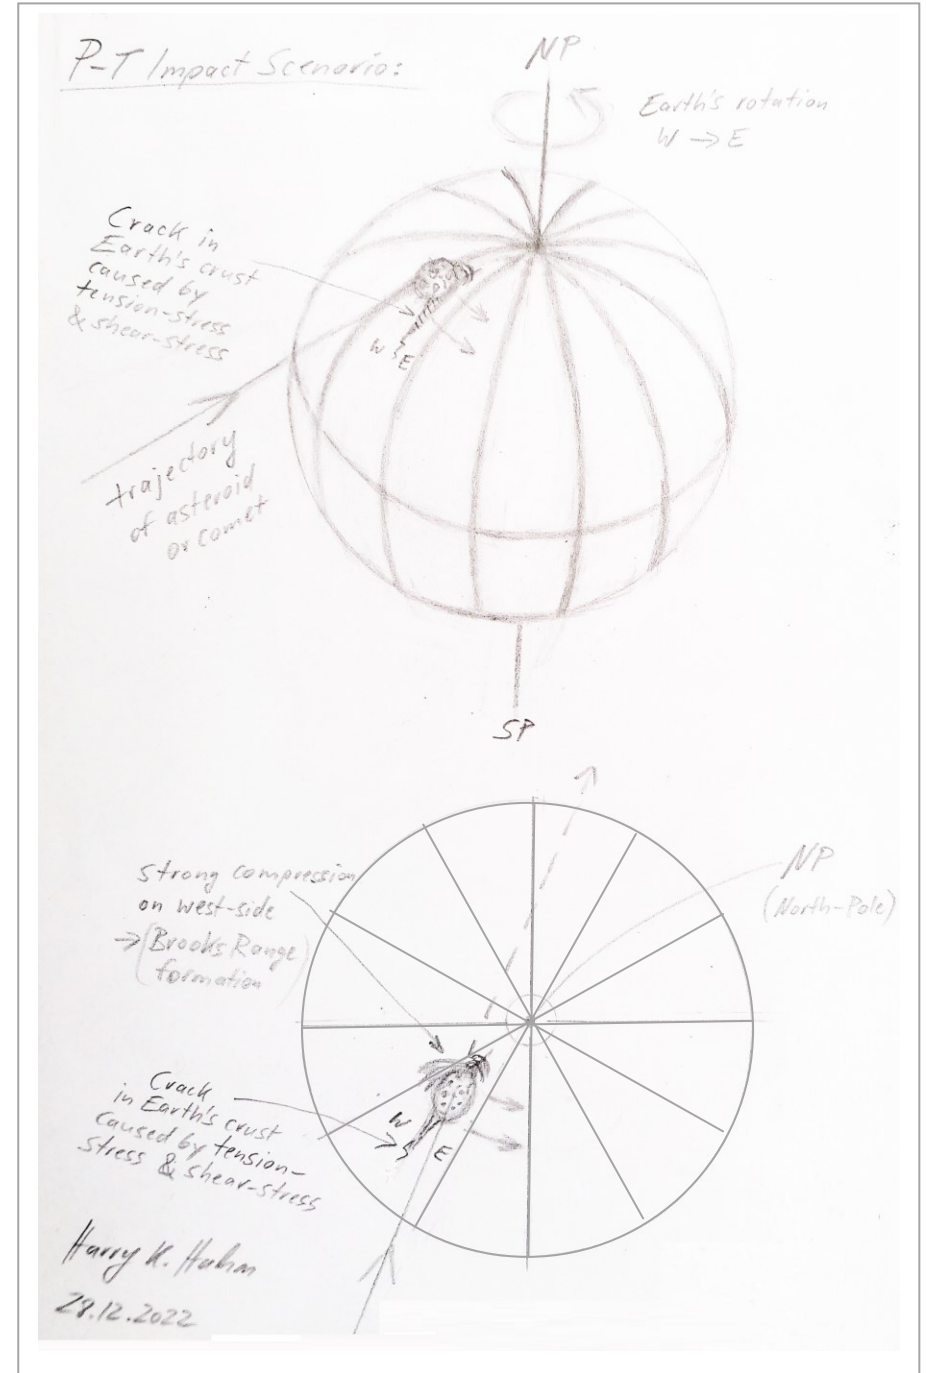 P-T Impact Scenario:
NP
Earth's rotation
W → E
Crack in
Earth's crust
caused by
tension-stress
& shear-stress
W
E
trajectory
of asteroid
or comet
SP
strong compression
on west-side
→ (Brooks Range
formation)
NP
(North-Pole)
Crack
in Earth's crust
caused by tension-
stress & shear-stress
W
E
Harry K. Hahm
28.12.2022